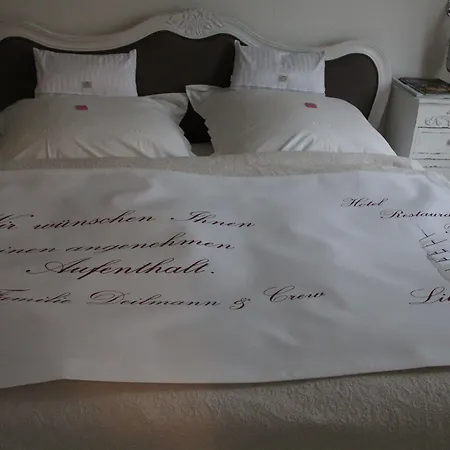 Wir wünschen Ihnen
einen angenehmen
Aufenthalt.
Familie Deilmann & Crew
Hotel
Restaura
Li